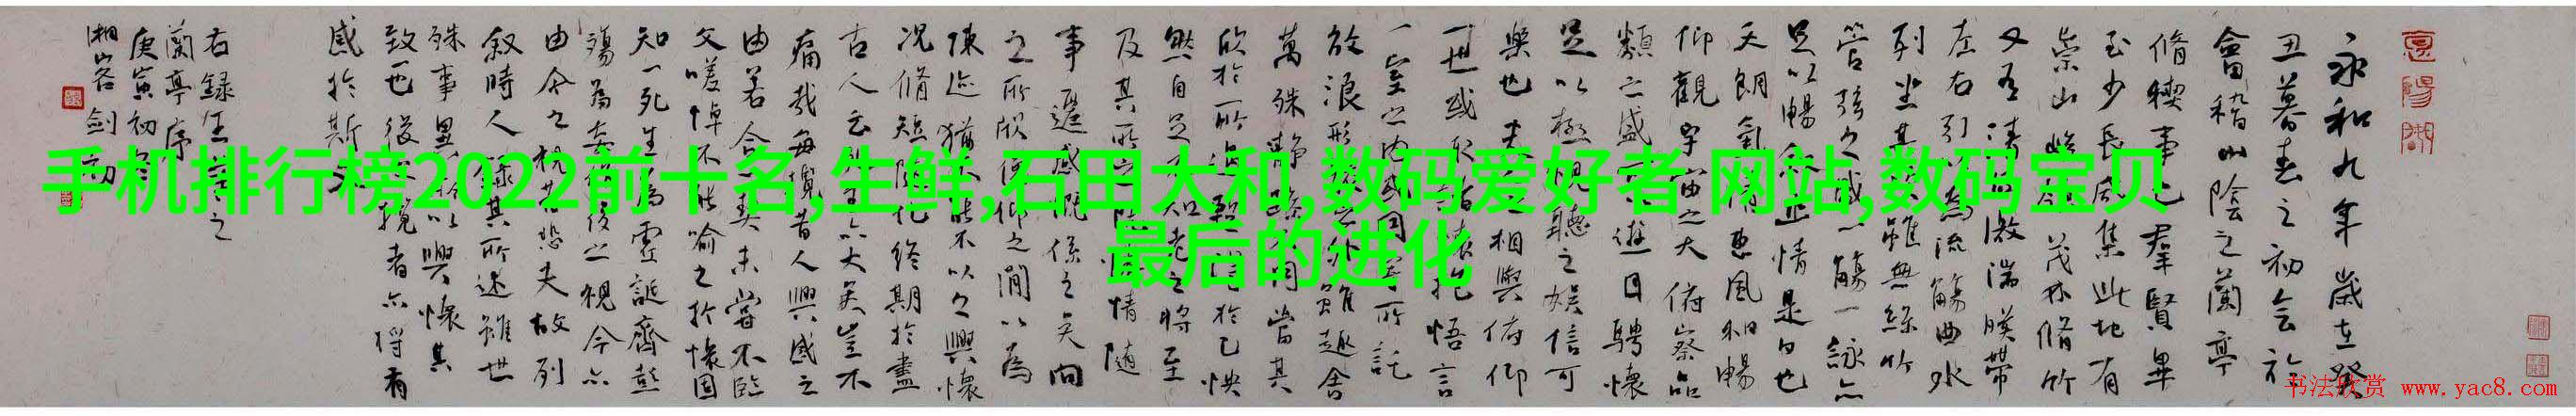 永和九年歲在癸
丑暮春之初会於
會稽山陰之蘭亭
脩禊事也羣賢畢
至少長咸集此地有
崇山峻領茂林脩竹
又有清流激湍暎帶
左右引以為流觴曲水
列坐其次雖無絲竹
管弦之盛一觴一詠亦
足以暢叙幽情是日也
天朗氣清惠風和暢
仰觀宇宙之大俯察品
類之盛所以遊目騁懷
足以極視聽之娛信可
樂也夫人之相與俯仰
一世或取諸懷抱悟言
一室之内或因寄所託
放浪形骸之外雖趣舍
萬殊静躁不同當其
欣於所遇暫得於己快
然自足不知老之將至
及其所之既惓情随
事遷感慨係之矣向
之所欣俛仰之間以為
陳迹猶不能不以之興懷
况脩短随化終期於盡
古人云死生亦大矣豈不
痛哉每攬昔人興感之
由若合一契未嘗不臨
文嗟悼不能喻之於懷固
知一死生為虚誕齊彭
殤為妄作後之視今亦
由今之視昔悲夫故列
叙時人録其所述雖世
殊事異所以興懷其
致一也後之攬者亦将有
感於斯文
右録王羲之
蘭亭序
庚寅初冬
湘客剑
手机排行榜2022前十名,生鲜,石田大和,数码爱好者 网站,数码宝贝
最后的进化
书法欣赏 www.yac8.com